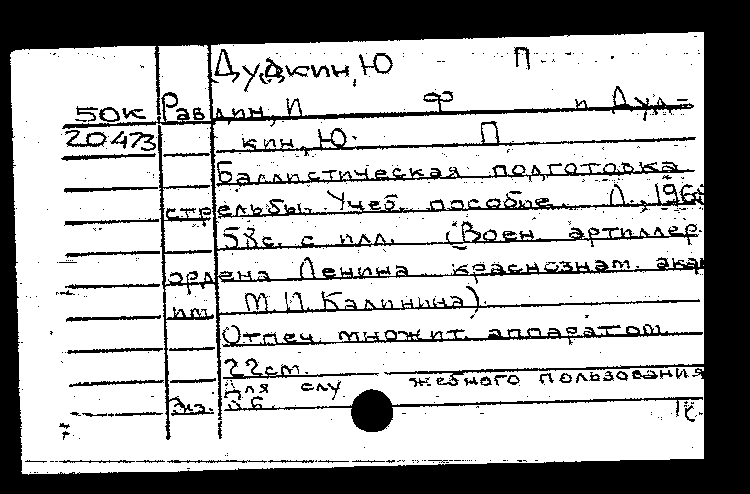 Дудкин, Ю П
50к Равдин, И Ф и Дуд=
20473 кин, Ю. П
Баллистическая подготовка
стрельбы. Учеб. пособие. Л., 196
58с. с илл. (Воен. артиллер.
ордена Ленина краснознам. ака
им. М.И. Калинина).
Отпеч. множит. аппаратом
22см.
Для слу жебного пользования
Экз.
7